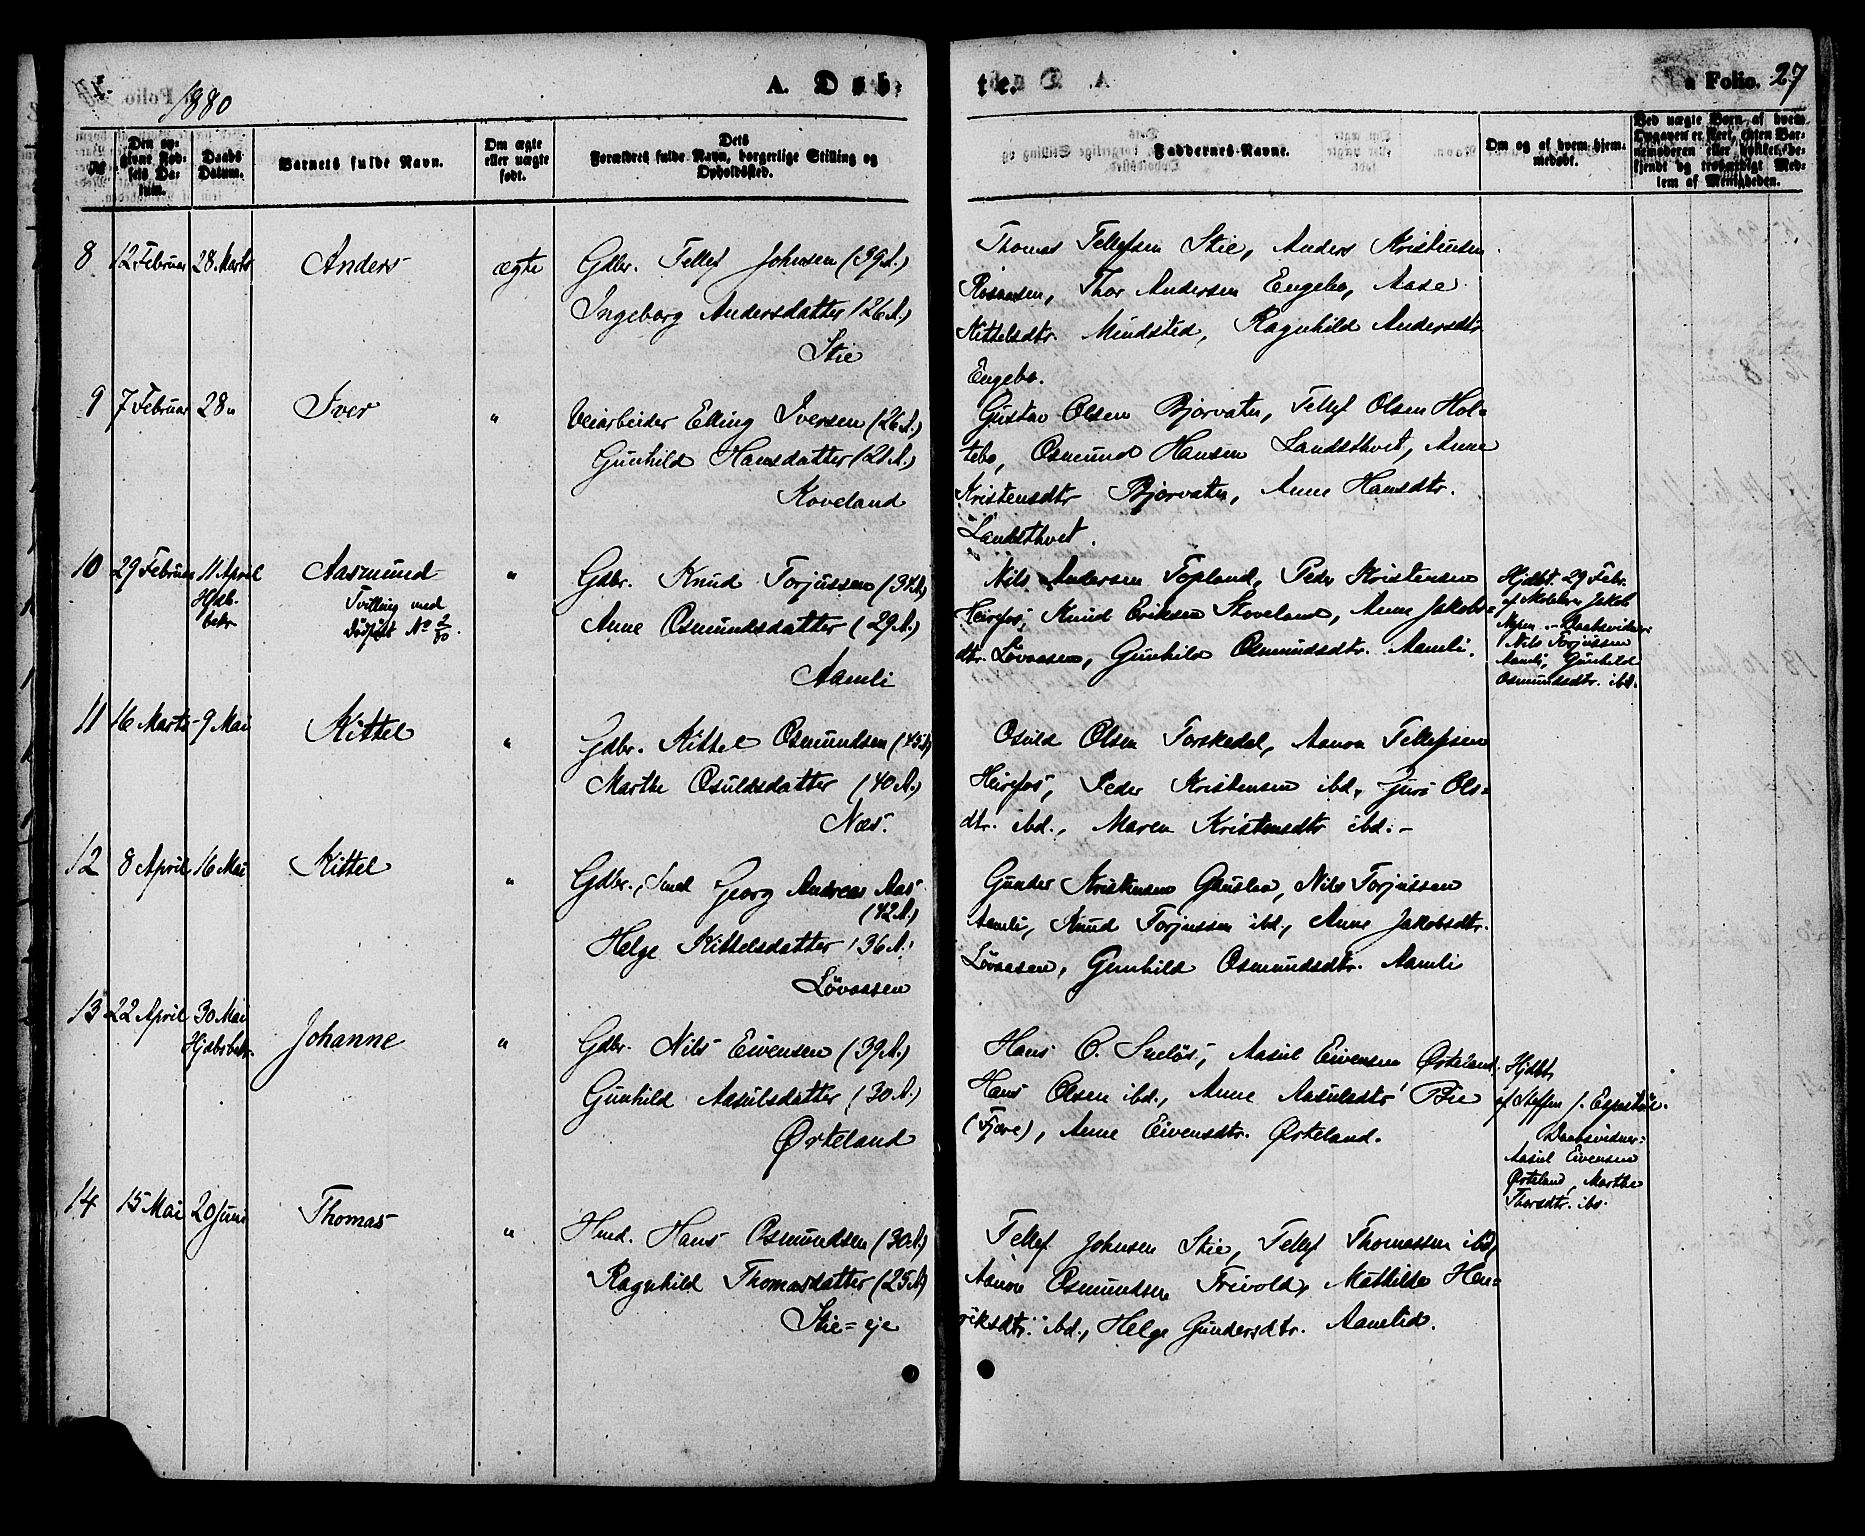 1880
A. Døb-
te.
a Folio. 27
No
Den opgivne Fødsels Datum.
Daabs Datum.
Barnets fulde Navn.
Om ægte eller uægte født.
Dets Forældres fulde Navn, borgerlige Stilling og Opholdssted.
Faddernes Navne.
Om og af hvem hjemmedøbt.
Ved uægte Børn, af hvem Opgaven er skeet, enten Barnemoderen eller hvilket bekjendt og troværdigt Medlem af Menigheden.
8 12 Februar 28 Marts Anders ægte Gdbr. Tellef Johnsen (39 A.)
Ingeborg Andersdatter (26 A.)
Stie
Thomas Tellefsen Stie, Anders Kristensen
Thor Andersen Engebo, Aase
Kittelsdtr. Mindsted, Ragnhild Andersdtr
Engebo.
9 7 Februar 28 " Iver " Veiarbeider Elling Iversen (26 A.)
Gunhild Hansdatter (21 A.)
Koveland
Gustav Olsen Bjorvatn, Tellef Olsen Hol-
tebo, Osmund Hansen Landsthvet, Anne
Kristensdtr Bjorvatn, Anne Hansdtr.
Landsthvet.
10 29 Februar 11 April Aasmund " Gdbr. Knud Torjussen (34 A.)
Hjdb.
bekr.
Tvilling med
dødfødt No 2/80.
Anne Osmundsdatter (29 A.)
Aamli
Nils Andersen Topland, Peder Kristensen
Heirefos, Knud Eriksen Skoveland, Anne Jakobs-
dtr. Løvaasen, Gunhild Osmundsdtr. Aamli.
Hjdbt. 29 Febr.
af Jakob
Daabsvidner:
Nils Torjussen
Aamli, Gunhild
Osmundsdtr. ibd.
11 16 Marts 9 Mai Kittel " Gdbr. Kittel Osmundsen (45 A.)
Marthe Osuldsdatter (40 A.)
Næs.
Osuld Olsen Torskedal, Aanon Tellefsen
Heirefos, Peder Kristensen ibd., Juri Ols-
dtr. ibd., Maren Kristensdtr ibd. –
12 8 April 16 Mai Kittel " Gdbr., Smed Georg Andreas Aas
(42 A.)
Helge Kittelsdatter (36 A.)
Løvaasen
Gunder Kristensen Nils Torjussen
Aamli, Knud Torjussen ibd., Anne Jakobsdtr.
Løvaasen, Gunhild Osmundsdtr. Aamli
13 22 April 30 Mai Johanne " Gdbr. Nils Eivensen (39 A.)
Hjdbsbekr.
Gunhild Aasulsdatter (30 A.)
Ørteland
Hans O. Sneløs, Aasul Eivensen Ørteland.
Hans Olsen ibd., Anne Aasulsdtr Bie
(Fjære), Anne Eivensdtr. Ørteland.
Hjdbt.
af Steffen J. Espestøl.
Daabsvidner:
Aasul Eivensen
Ørteland, Marthe
Thorsdtr. ibd.
14 15 Mai 20 Juni Thomas " Hmd. Hans Osmundsen (30 A.)
Ragnhild Thomasdatter (25 A.)
Stie-eje
Tellef Johnsen Stie, Tellef Thomassen ibd.,
Aanon Osmundsen Trivold, Mathilde Hen-
riksdtr. ibd., Helge Gundersdtr. Aamlid.